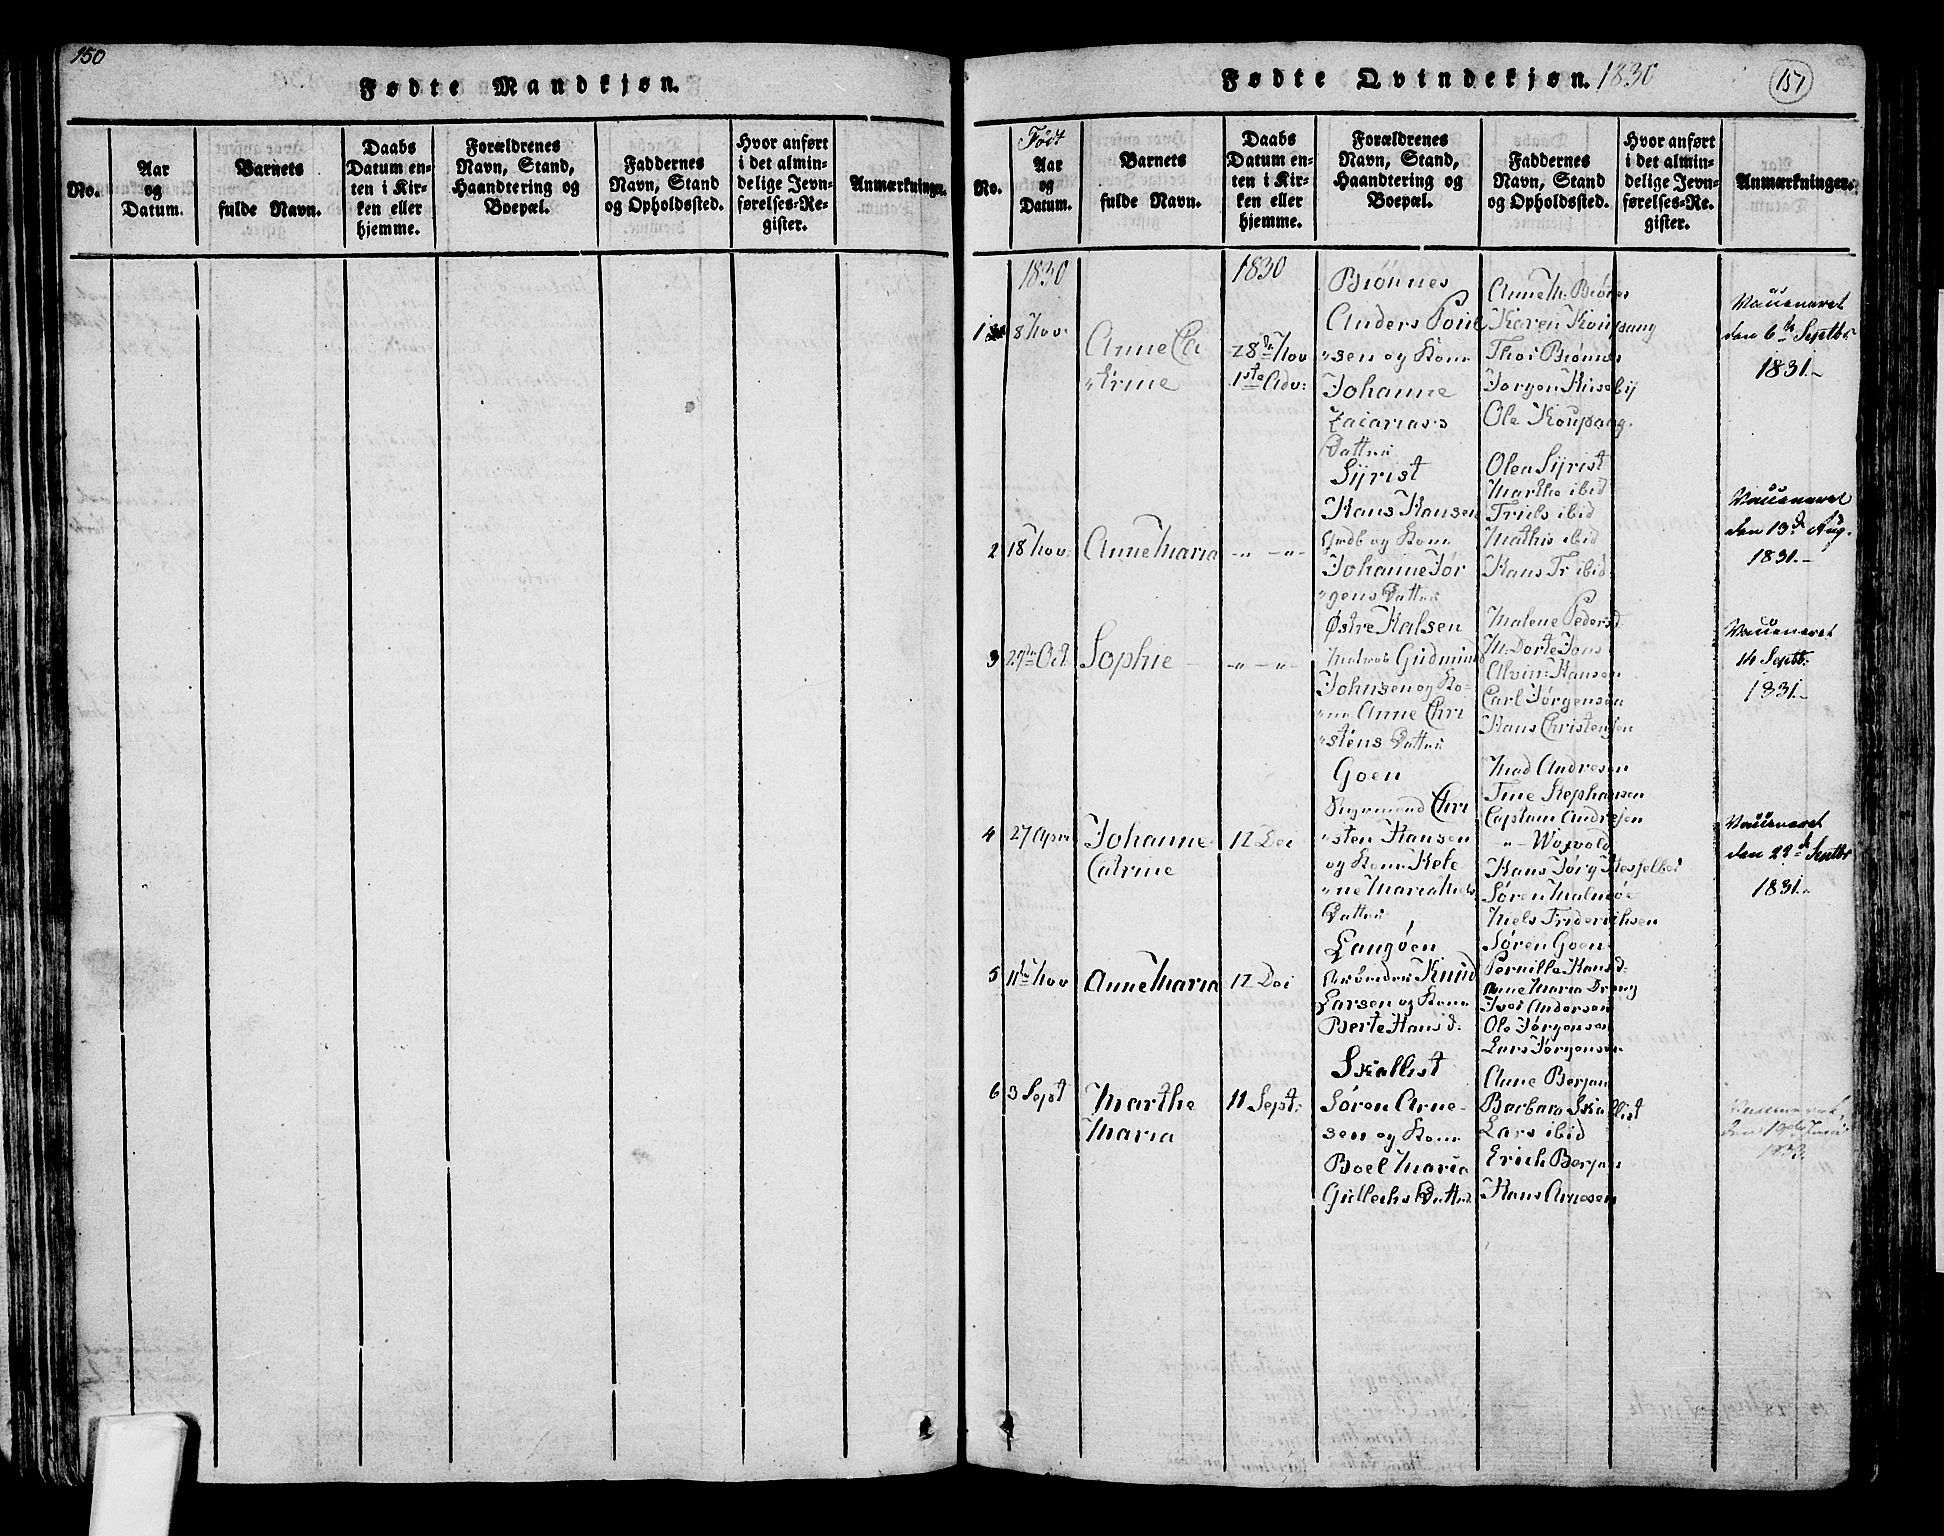 150
Fødte Mandkjøn.
No.
Aar og Datum.
Barnets fulde Navn.
Daabs Datum enten i Kirken eller hjemme.
Forældrenes Navn, Stand, Haandtering og Boepæl.
Faddernes Navn, Stand og Opholdssted.
Hvor anført i det almindelige Jevnførelses-Register.
Anmærkninger.
Fødte Qvindekjøn. 1830
151
No.
Født
Aar og Datum.
Barnets fulde Navn.
Daabs Datum enten i Kirken eller hjemme.
Forældrenes Navn, Stand, Haandtering og Boepæl.
Faddernes Navn, Stand og Opholdssted.
Hvor anført i det almindelige Jevnførelses-Register.
Anmærkninger.
1830
1830
1
8 Nov:
Anne Ca
"trine
28de Nov
1ste Adv:
Brönnes
Anders Poul
"sen og Kone
Johanne
Zacarias
Datter
Anne M: Brönes
Karen Koupang
Thor Brönes
Jørgen Huseby
Ole Koupang.
Vaccineret
den 6te Septbr
1831.-
2
18 Nov:
Anne Maria
-"- -"-
Syrist
Hans Hansen
og Kone
Johanne Jør
"gens Datter
Olea Syrist
Marthe ibid
Friels ibid
Mathis ibid
Hans Fr ibid
Vaccineret
den 13de Aug.
1831.-
3
27de Oct
Sophie
-"- -"-
Østre Halsen
Gudmund
Johnsen og Ko-
"ne Anne Chri
"stens Datter
Malene Pedersd
M: Dorte Jons
Alvin: Hansen
Carl Jørgensen
Hans Christensen
Vaccineret
14 Septb:
1831.-
4
27 Apri
Johanne
Catrine
12 Dec
Goen
Chri
"sten Hansen
og Kone Kete
"ne Maria Niels
Datter
Mad Andresen
Tine Stephansen
Captain Andresen
"- Woxvold
Hans Jørg
Søren Malmöe
Niels Frideriksen
Søren Goen
Vaccineret
den 22de Septbr
1831.-
5
11te Nov
Anne Maria
12 Dec
Langöen
Knud
Larsen og Kone
Berte Hans d:
Pernille Hansd:
Anne Maria
Iver Andersen
Ole Jørgensen
Lars Jørgensen
6
3 Sept
Marthe
Maria
11 Sept:
Skallist
Søren Arne-
sen og Kone
Boel Maria
Gullechs Datter
Anne Berjan
Barbara Skallist
Lars ibid
Erich Berjan
Hans Arnesen
Vaccineret